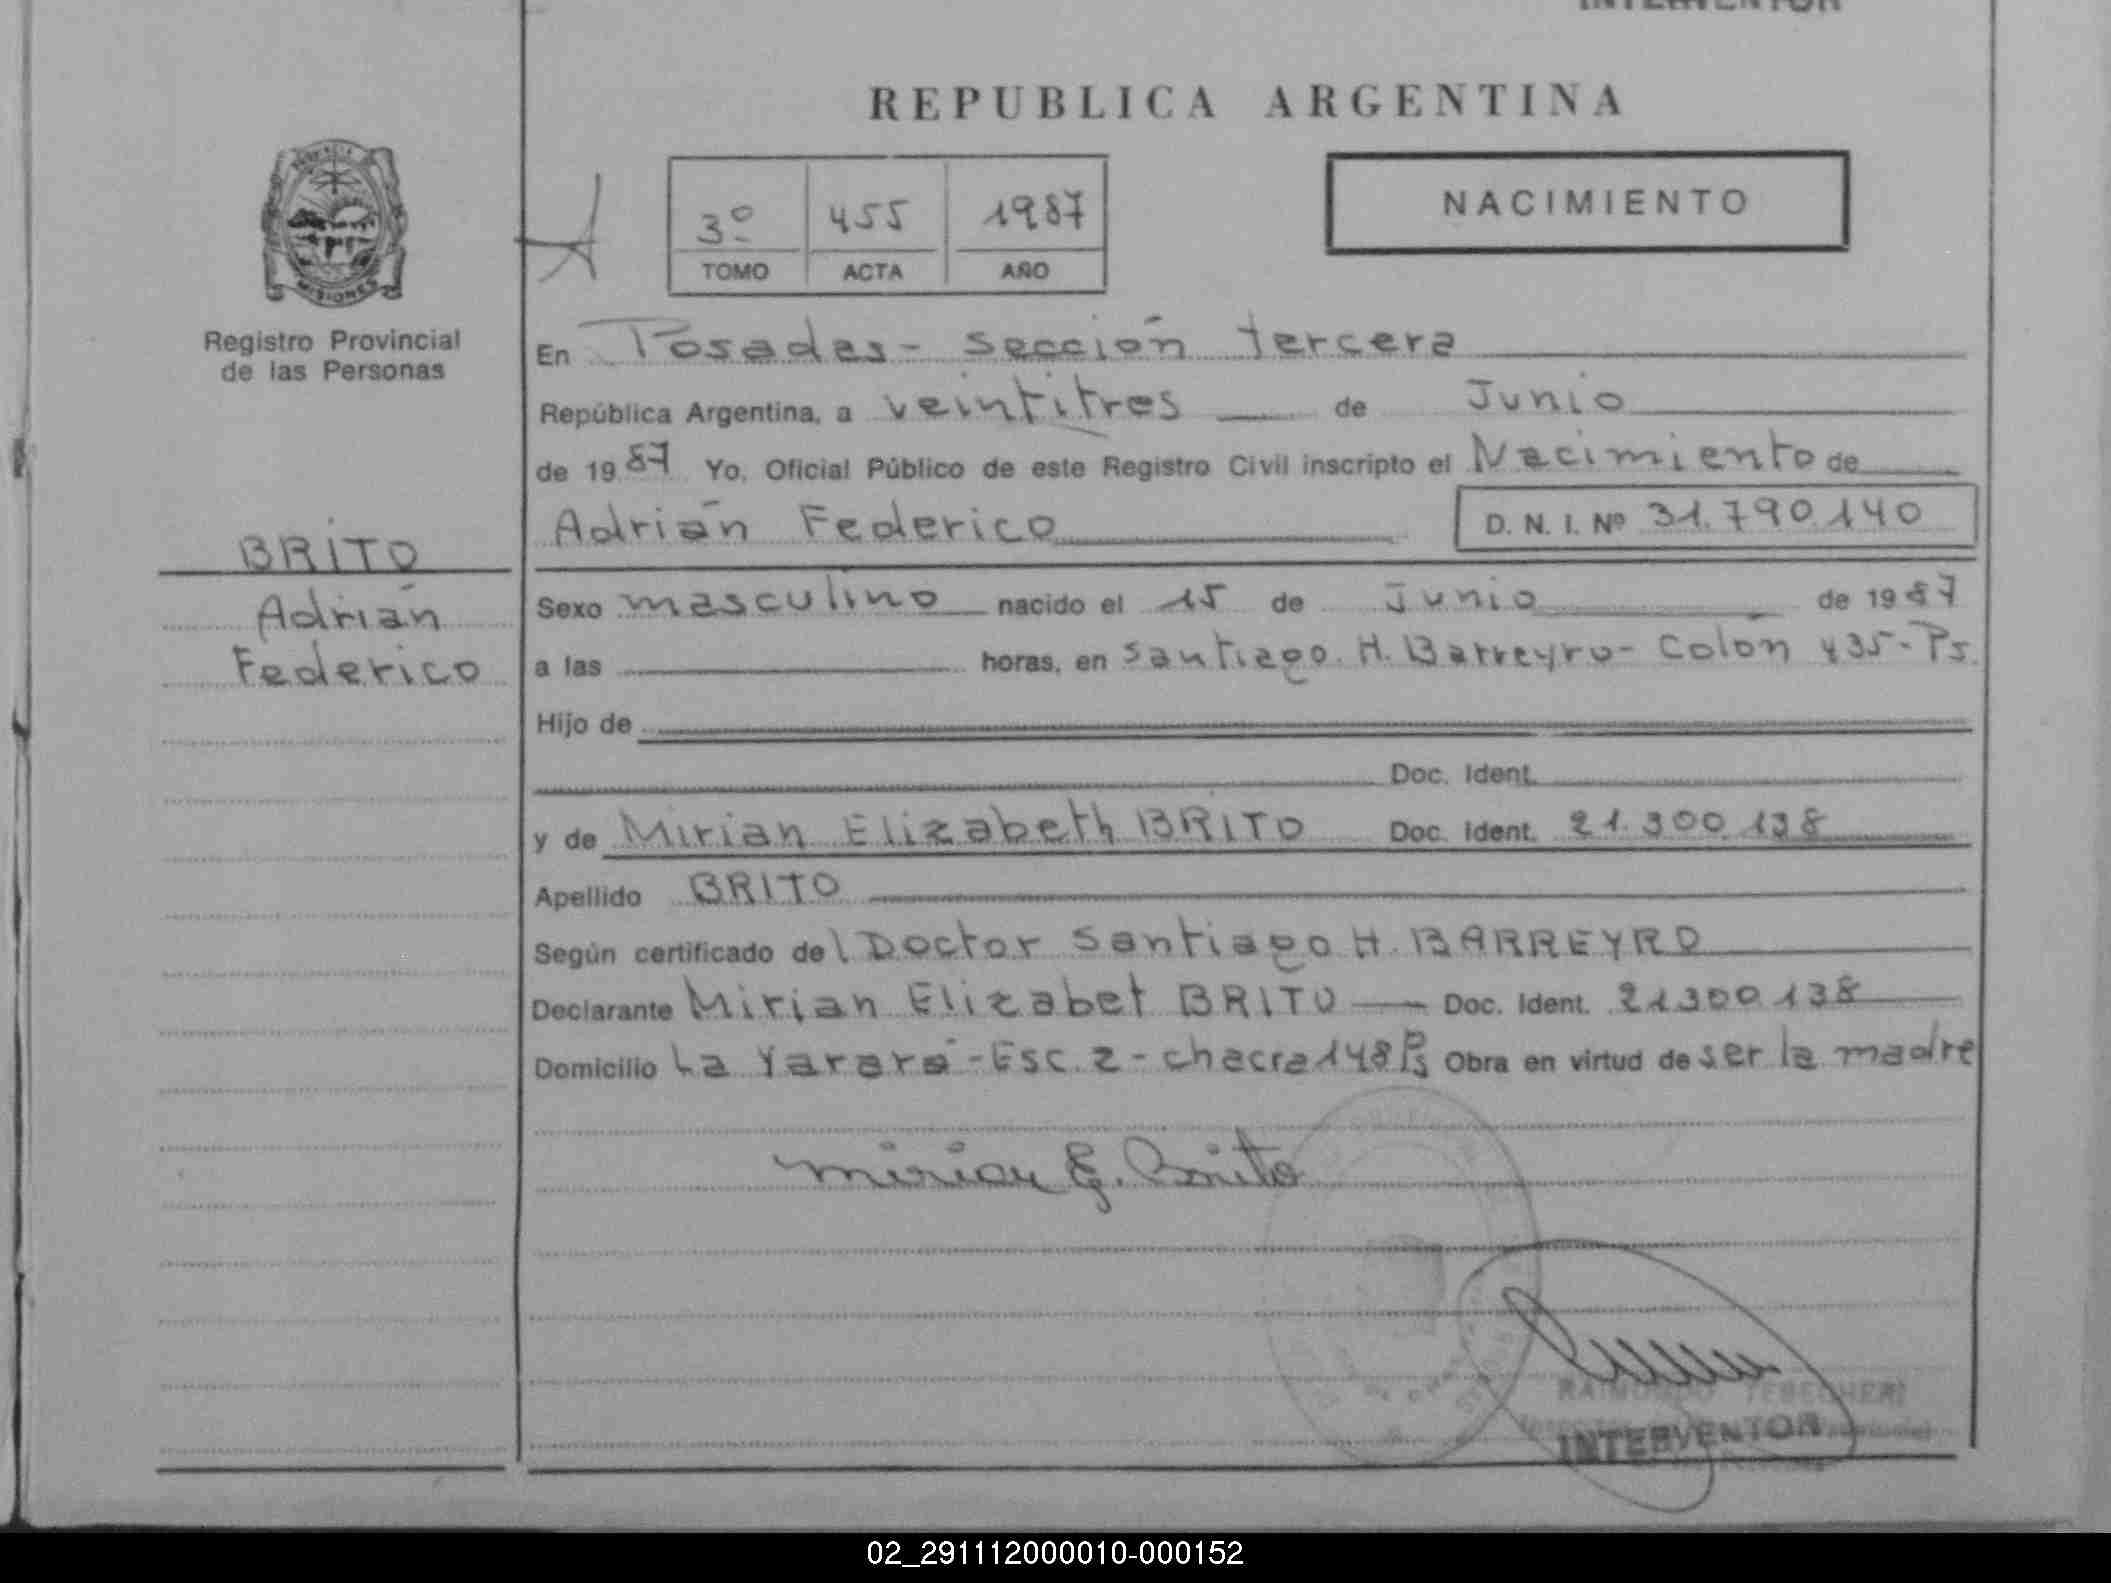 INTERVENTOR
REPUBLICA ARGENTINA
NACIMIENTO
3º 455 1987
TOMO ACTA AÑO
MISIONES
Registro Provincial
de las Personas
BRITO
Adrián
Federico
En Posadas - sección tercera
República Argentina, a veintitres de Junio
de 1987 Yo, Oficial Público de este Registro Civil inscripto el Nacimiento de
Adrián Federico D. N. I. Nº 31.790.140
Sexo masculino nacido el 15 de Junio de 1987
a las horas, en Santiago. H. Barreyro - Colón 435 - Ps.
Hijo de
Doc. Ident.
y de Mirian Elizabeth BRITO Doc. Ident. 21.300.138
Apellido BRITO
Según certificado del Doctor Santiago H. BARREYRO
Declarante Mirian Elizabet BRITO Doc. Ident. 21300.138
Domicilio La Yarará - Esc. 2 - chacra 148 Ps Obra en virtud de ser la madre
Mirian E. Brito
RAIMUNDO
INTERVENTOR
02_291112000010-000152